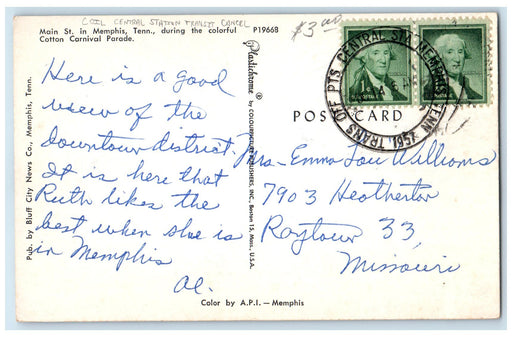 COIL CENTRAL STATION TRANSIT CANCEL
$3.00
Main St. in Memphis, Tenn., during the colorful
Cotton Carnival Parade.
P1966B
Here is a good
view of the
downtown district.
It is here that
Ruth likes the
best when she is
in Memphis
Al.
Pub. by Bluff City News Co., Memphis, Tenn.
Plastichrome ®
by COLOURPICTURE PUBLISHERS, INC., Boston 15, Mass., U.S.A.
POST CARD
TRANS OFF PTS CENTRAL STA MEMPHIS TENN 1957
Mrs. Emma Lou Williams
7903 Heatherton
Raytown 33,
Missouri
Color by A.P.I. — Memphis